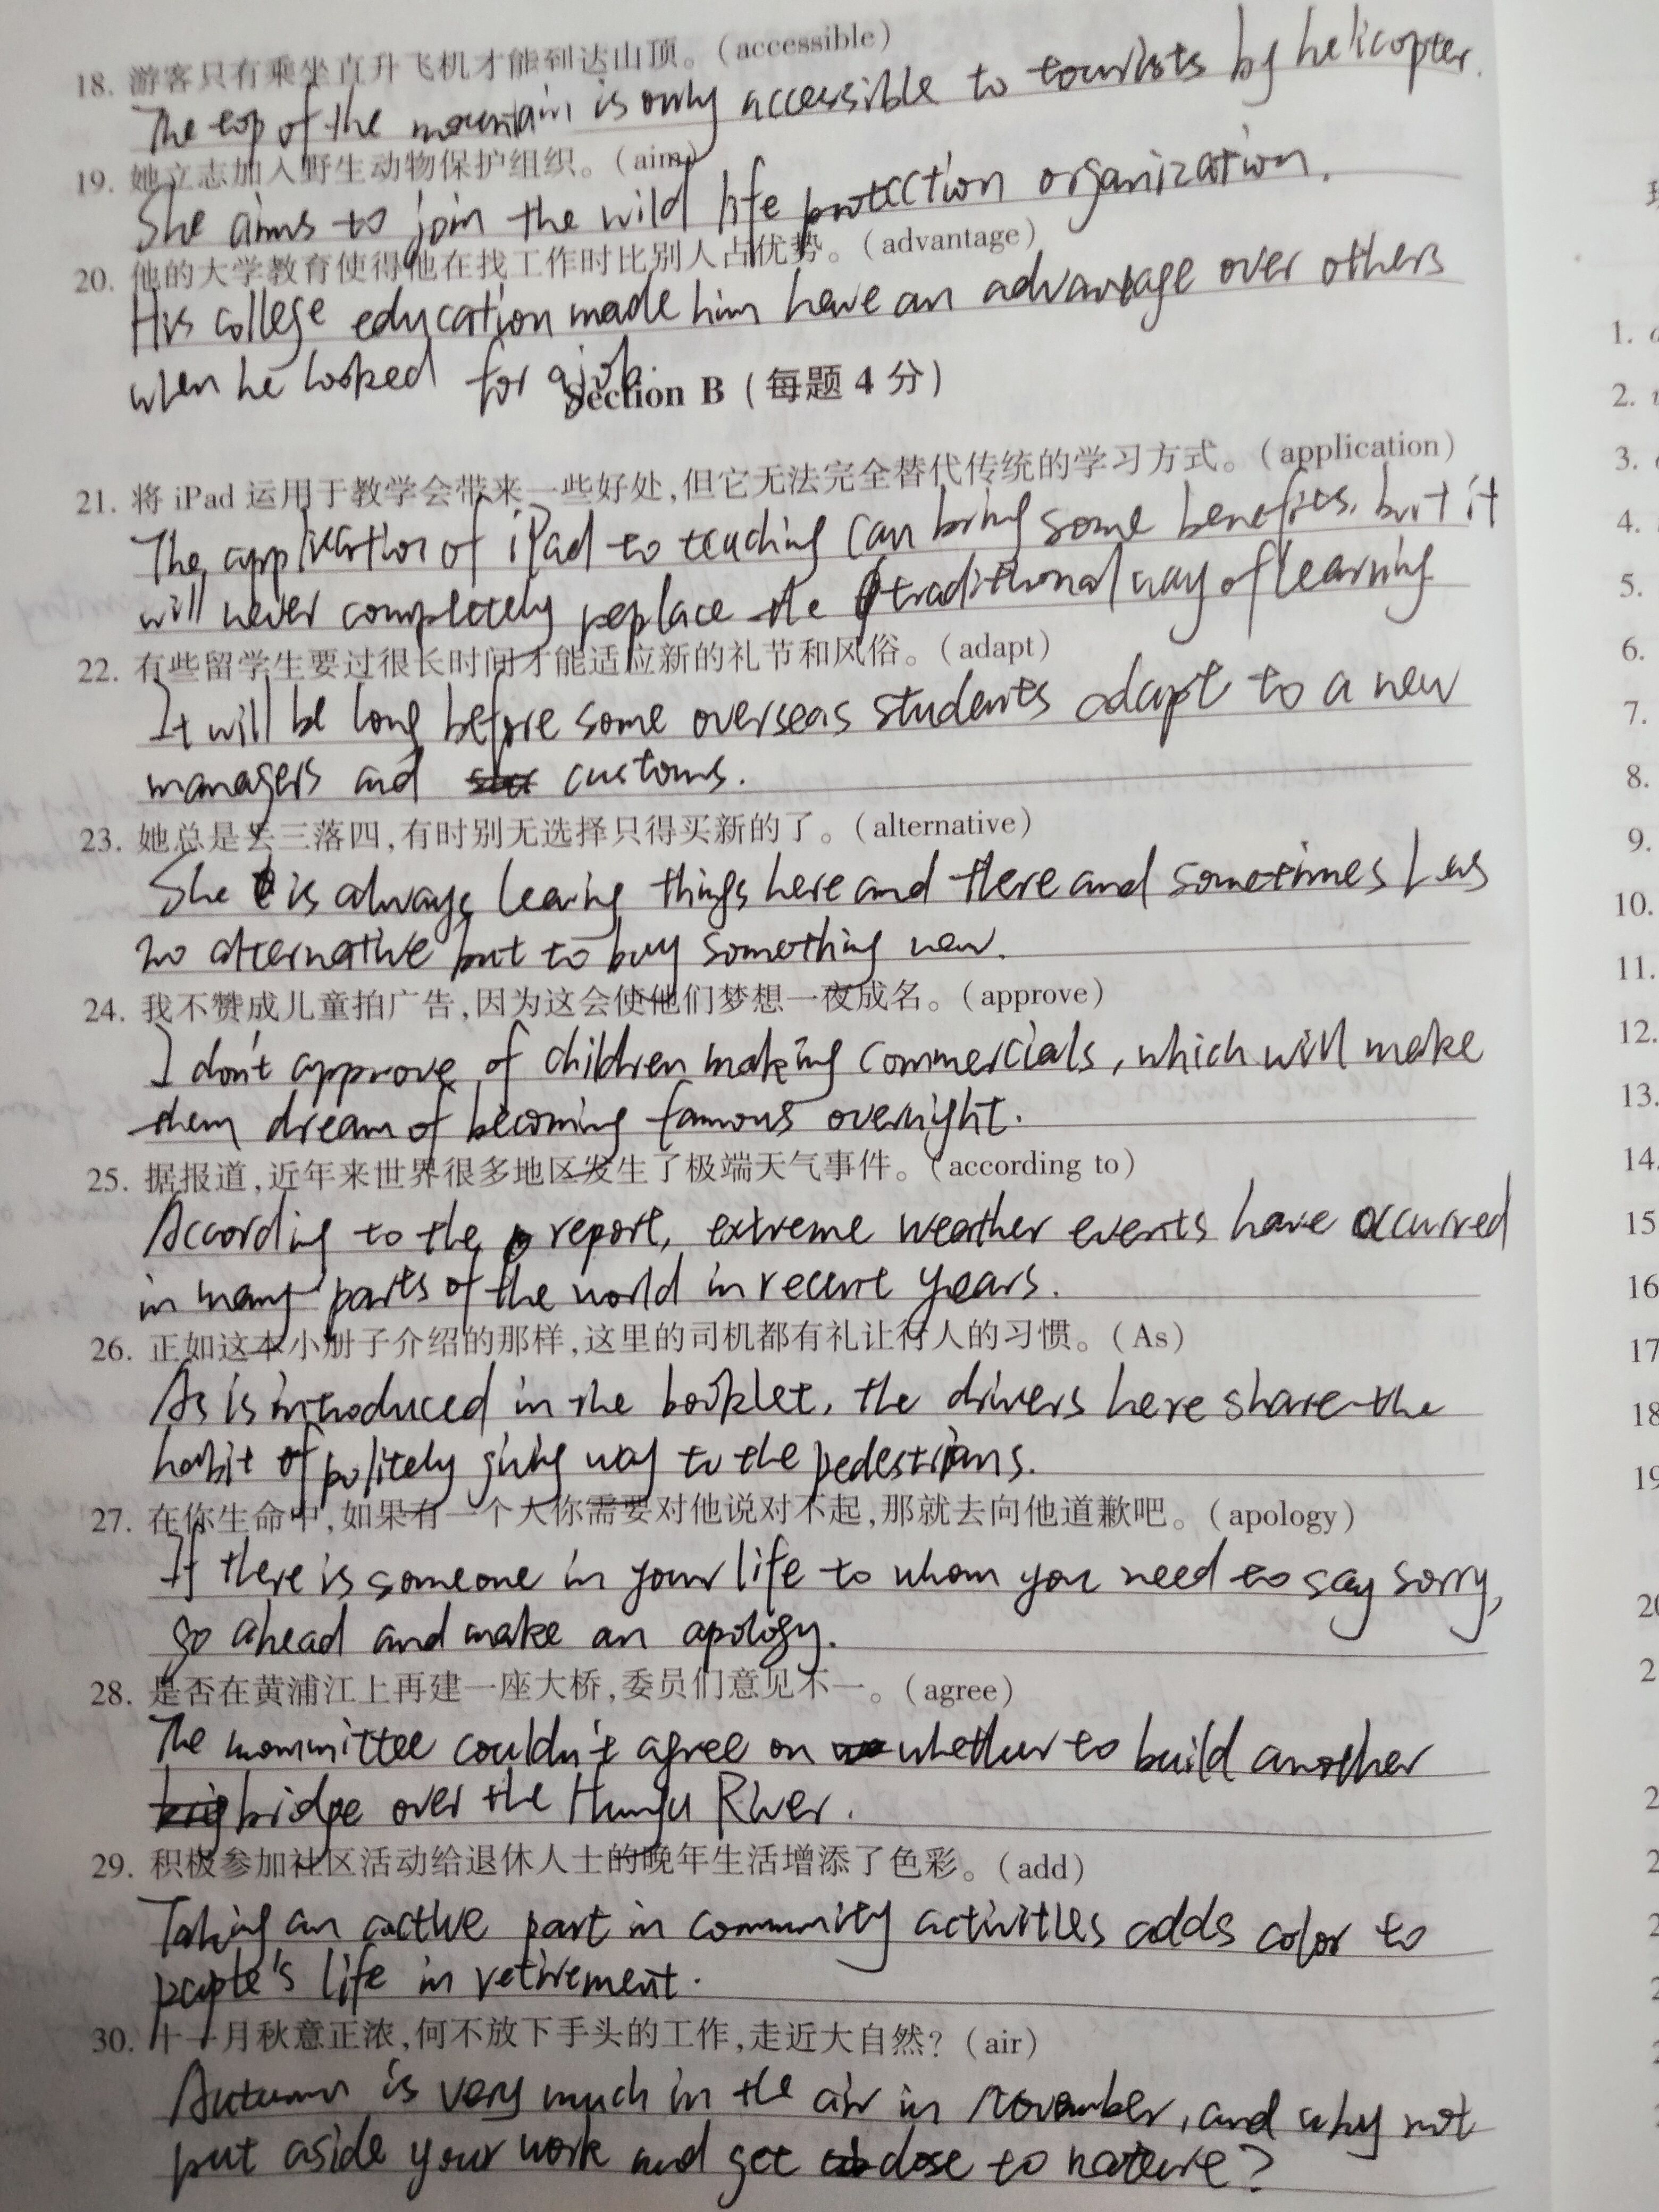 18. 游客只有乘坐直升飞机才能到达山顶。(accessible)
The top of the mountain is only accessible to tourists by helicopter.
19. 她立志加入野生动物保护组织。(aim)
She aims to join the wild life protection organization.
20. 他的大学教育使得他在找工作时比别人占优势。(advantage)
His college education made him have an advantage over others
when he looked for a job.
Section B (每题 4 分)
21. 将 iPad 运用于教学会带来一些好处,但它无法完全替代传统的学习方式。(application)
The application of iPad to teaching can bring some benefits, but it
will never completely replace the traditional way of learning
22. 有些留学生要过很长时间才能适应新的礼节和风俗。(adapt)
It will be long before some overseas students adapt to a new
managers and customs.
23. 她总是丢三落四,有时别无选择只得买新的了。(alternative)
She is always leaving things here and there and sometimes has
no alternative but to buy something new.
24. 我不赞成儿童拍广告,因为这会使他们梦想一夜成名。(approve)
I don't approve of children making commercials, which will make
them dream of becoming famous overnight.
25. 据报道,近年来世界很多地区发生了极端天气事件。(according to)
According to the report, extreme weather events have occurred
in many parts of the world in recent years.
26. 正如这本小册子介绍的那样,这里的司机都有礼让行人的习惯。(As)
As is introduced in the booklet, the drivers here share the
habit of politely giving way to the pedestrians.
27. 在你生命中,如果有一个人你需要对他说对不起,那就去向他道歉吧。(apology)
If there is someone in your life to whom you need to say sorry,
go ahead and make an apology.
28. 是否在黄浦江上再建一座大桥,委员们意见不一。(agree)
The committee couldn't agree on whether to build another
bridge over the River.
29. 积极参加社区活动给退休人士的晚年生活增添了色彩。(add)
Taking an active part in community activities adds color to
people's life in retirement.
30. 十一月秋意正浓,何不放下手头的工作,走近大自然? (air)
Autumn is very much in the air in November, and why not
put aside your work and get close to nature?
1.
2.
3.
4.
5.
6.
7.
8.
9.
10.
11.
12.
13.
14.
15
16
17
18
19